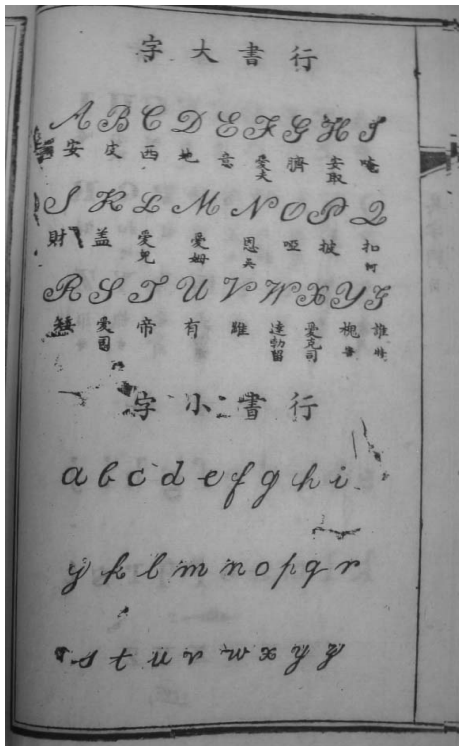 行書大字
A B C D E F G H I
安 皮 西 地 意 愛夫 臍 安取 唵
J K L M N O P Q
財 盖 愛兒 愛姆 恩 啞 披 扣
R S T U V W X Y Z
愛 帝 有 雖 達勃留 愛克司 槐 誰
行書小字
a b c d e f g h i
j k l m n o p q r
s t u v w x y z